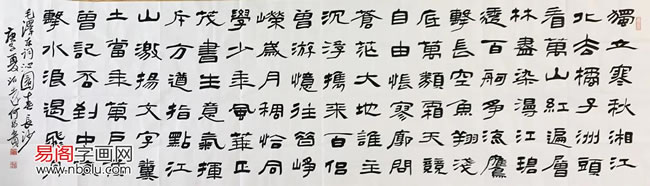 獨立寒秋湘江
北去橘子洲頭
看萬山紅遍層
林盡染漫江碧
透百舸爭流鷹
擊長空魚翔淺
底萬類霜天競
自由悵寥廓問
蒼茫大地誰主
沉浮攜來百侶
曾游憶往昔崢
嶸歲月稠恰同
學少年風華正
茂書生意氣揮
斥方遒指點江
山激揚文字糞
土當年萬戶
曾記否到中
擊水浪遏飛
毛澤東詞沁園春長沙
庚子夏
易阁字画网
www.nbolu.com